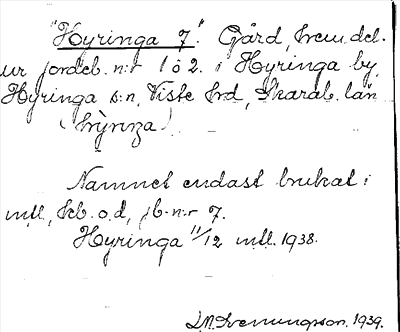 "Hyringa 7". Gård, frem. del.
ur jordeb. n:r 1 o 2. i Hyringa by,
Hyringa s:n, Viste hrd, Skarab. län
Namnet endast brukat i
mtl, kb. o.d., jb. n:r 7.
Hyringa 11/12 mtl. 1938.
1939.